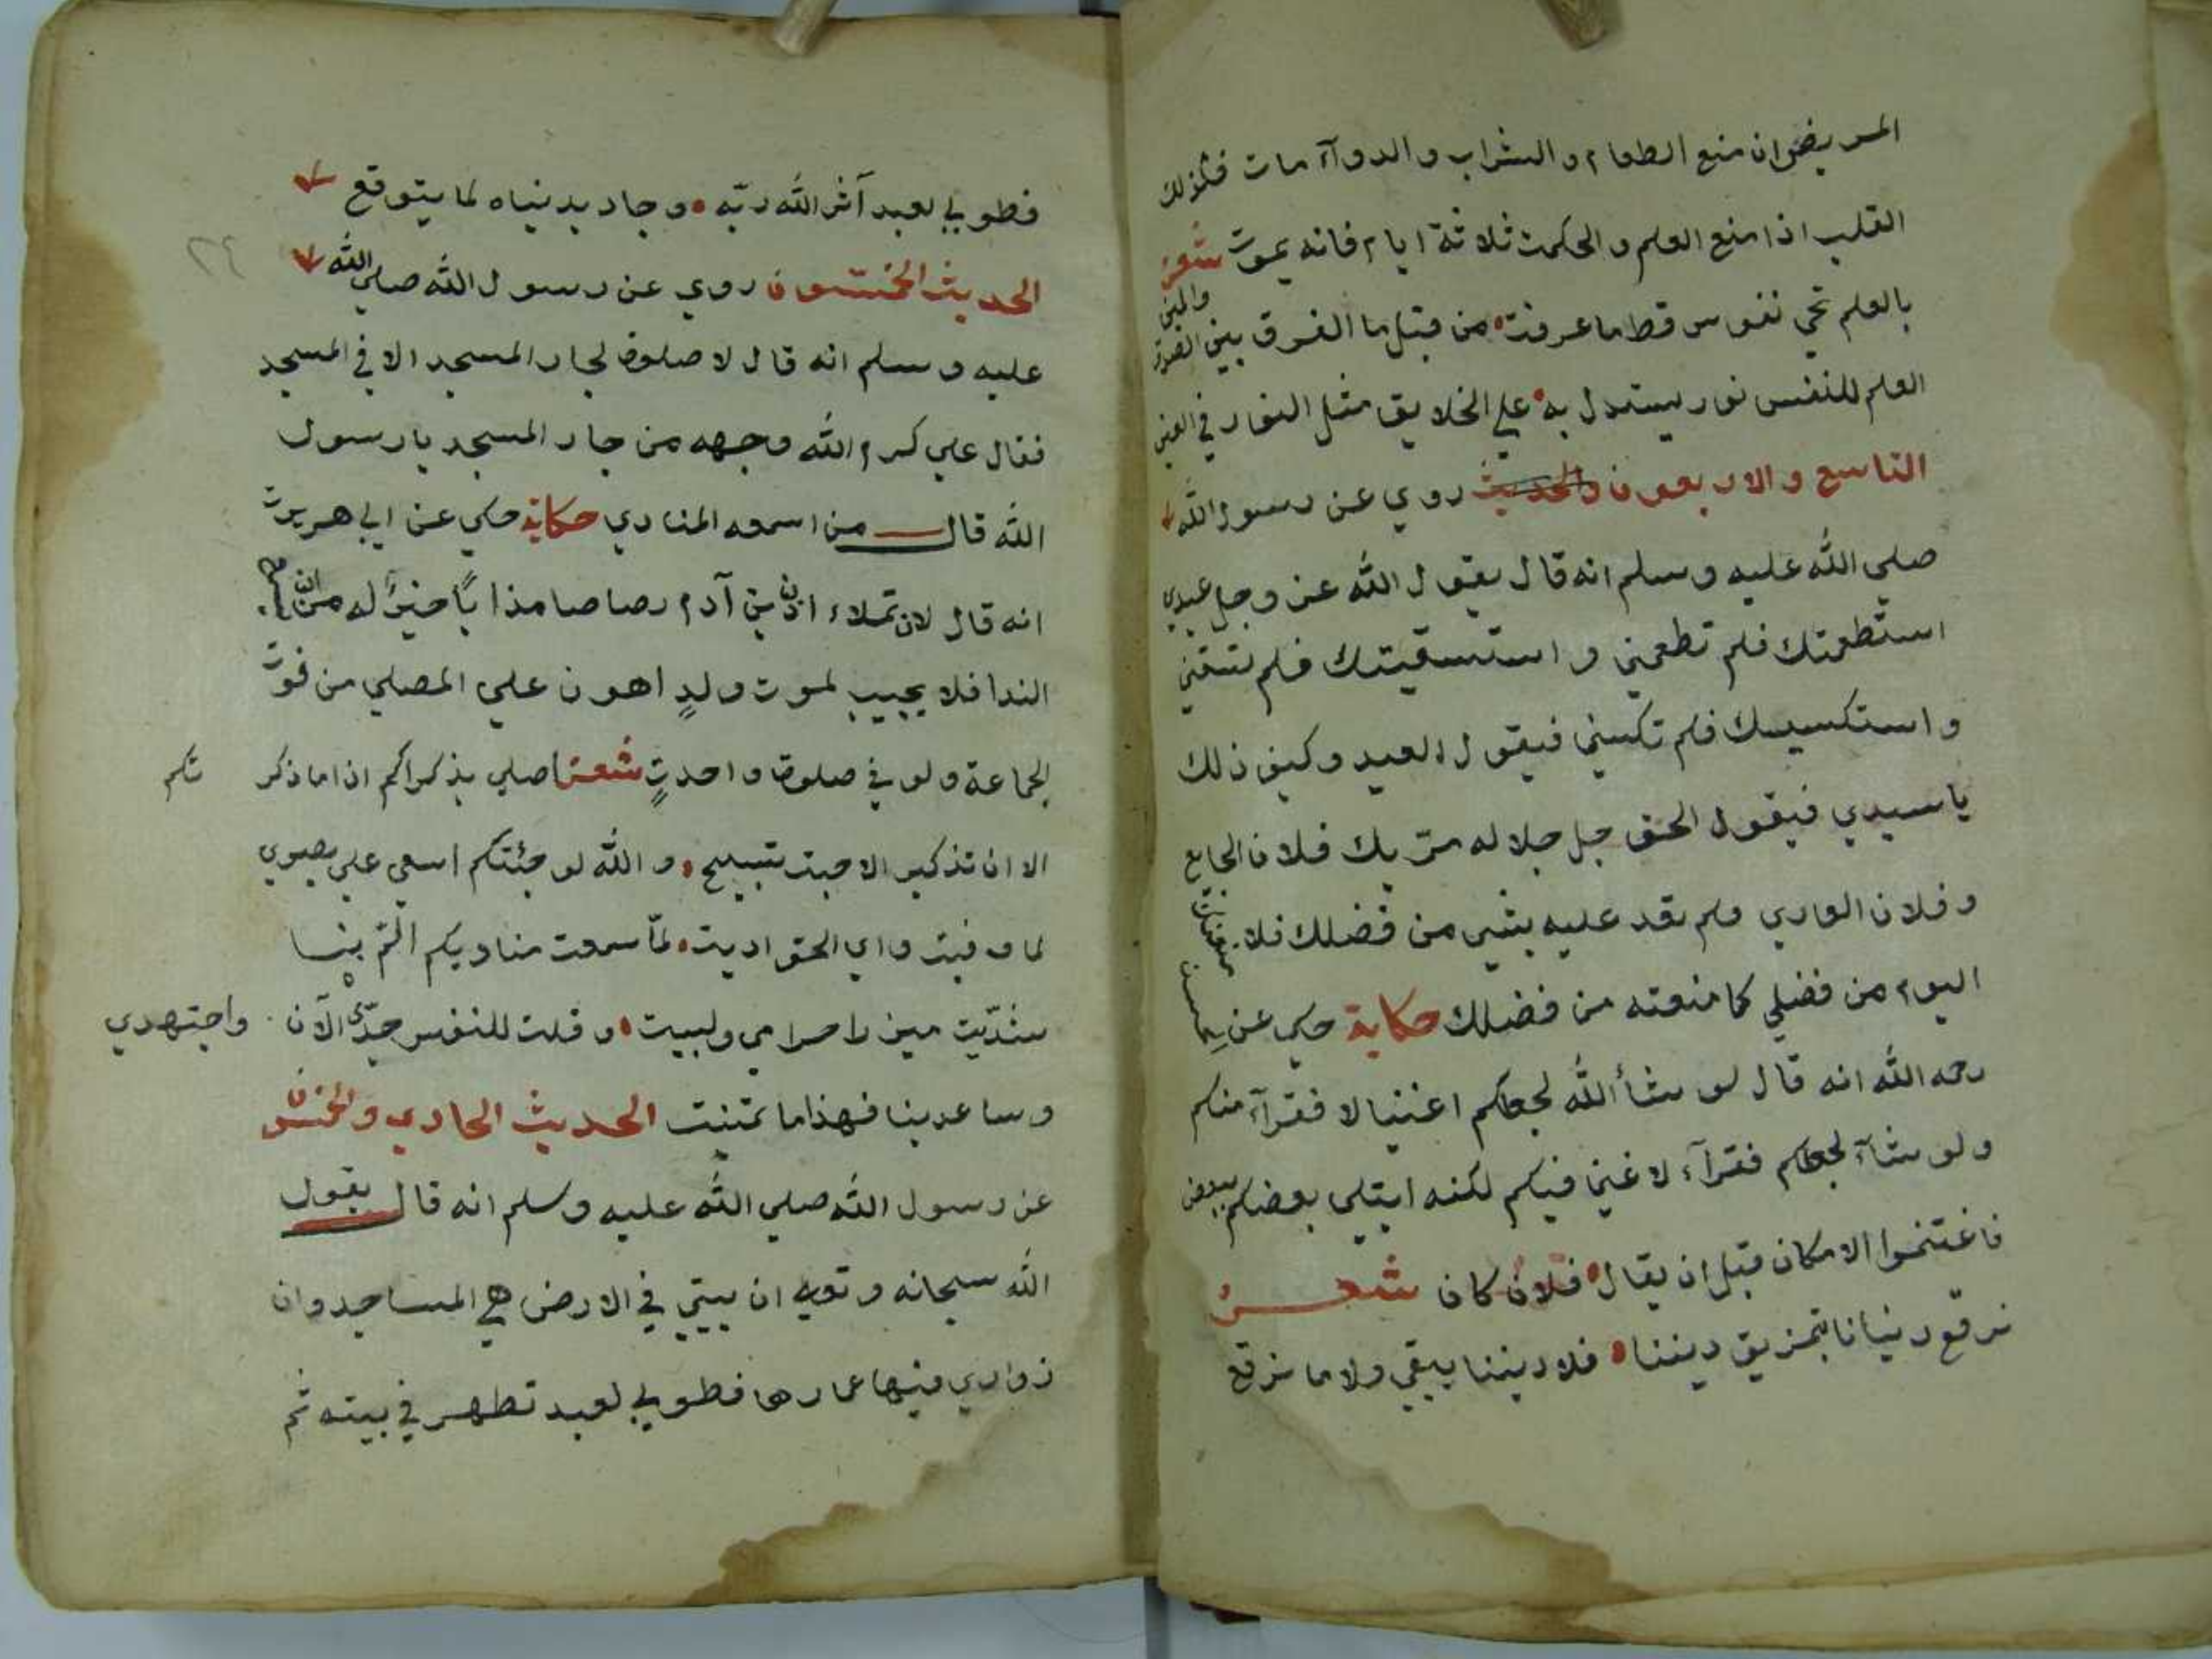 المريض ان منع الطعام والشراب والدوآء مات فكذلك
القلب اذا منع العلم والحكمت ثلاثة ايام فانه يموت شعر
بالعلم تحي نفوس قط ما عرفت من قبل ما الفرق بين الصدق والمين
العلم للنفس نور يستدل به علي الخلايق مثل النور في العين
التاسع والاربعون والحديث روي عن رسول الله
صلي الله عليه وسلم انه قال يقول الله عز وجل عبدي
استطعمتك فلم تطعمني واستسقيتك فلم تسقني
واستكسيتك فلم تكسني فيقول العبد وكيف ذلك
ياسيدي فيقول الحق جل جلاله مر بك فلان الجايع
وفلان العاري ولم تعد عليه بشي من فضلك فلا
اليوم من فضلي كما منعته من فضلك حكاية حكي عن
رحمه الله انه قال لو شأ الله لجعلكم اغنيا لا فقرآء منكم
ولو شآء لجعلكم فقرآء لا غني فيكم لكنه ابتلي بعضكم ببعض
فاغتنموا الامكان قبل ان يقال فلان كان شعر
نرقع دنيانا بتمزيق ديننا فلا ديننا يبقي ولا ما نرقع
٢٤
فطوبي لعبد آثر الله ربّه وجاد بدنياه لما يتوقع
الحديث الخمسون روي عن رسول الله صلي الله
عليه وسلم انه قال لا صلوة لجار المسجد الا في المسجد
فقال علي كرم الله وجهه من جار المسجد يارسول
الله قال من اسمعه المنادي حكاية حكي عن ابي هريرت
انه قال لان تملاء اذن بن آدم رصاصا مذابًا خيرًا له من ان يسمع
الندا فلا يجيب لموت ولدٍ اهون علي المصلي من فوت
الجماعة ولو في صلوة واحدتٍ شعر اصلي بذكراكم اذا ما ذكرتكم
الا ان تذكير الاحبت تسبيح والله لو جئتكم اسعي علي بصري
لما وفيت واي الحق اديت لمّا سمعت مناديكم المّ بنا
شدّيت ميزر احرامي ولبيت وقلت للنفس جدّي الآن واجتهدي
وساعدينا فهذا ما تمنيت الحديث الحادي والخمسون
عن رسول الله صلي الله عليه وسلم انه قال يقول
الله سبحانه وتعالي ان بيتي في الارض هي المساجد وان
زواري فيها عمارها فطوبي لعبد تطهر في بيته ثم